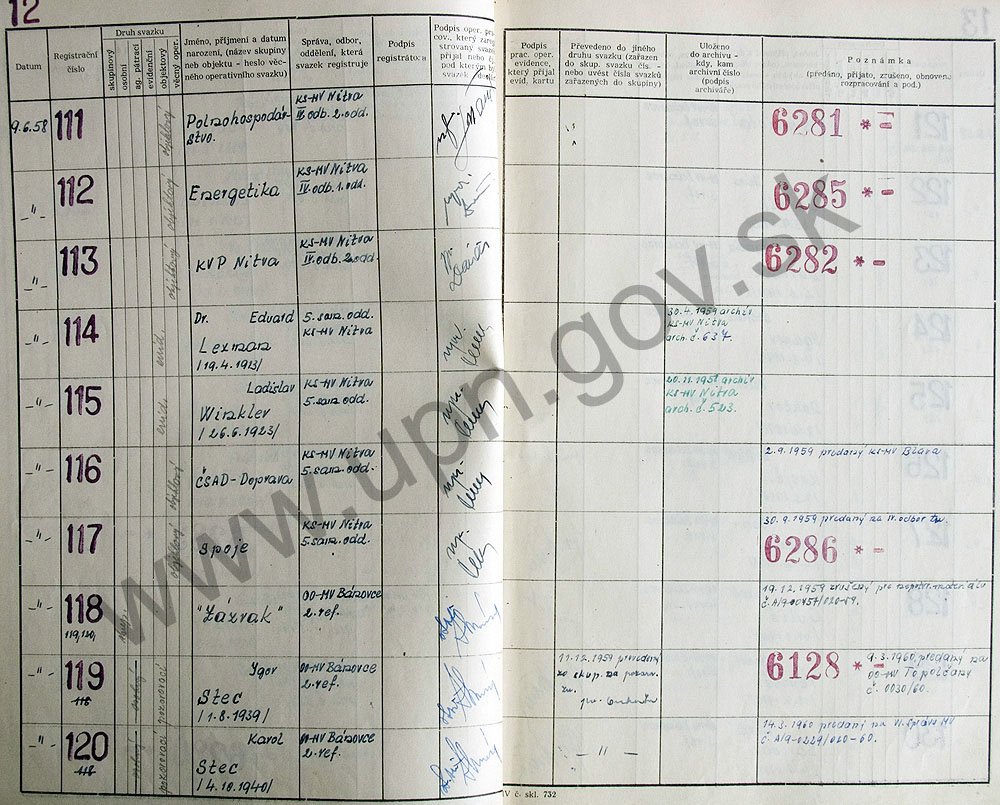 12
Datum
Registrační
číslo
Druh svazku
skupinový
osobní
ap. pátrací
evidenční
objektový
věcný oper.
Jméno, příjmení a datum
narození, (název skupiny
neb objektu - heslo věc-
ného operativního svazku)
Správa, odbor,
oddělení, která
svazek registruje
Podpis
registrátora
Podpis oper. pra-
cov., který zareg
strovaný svaze
přijal neb
pod kterým b
svazek
Podpis
prac. oper.
evidence,
který přijal
evid. kartu
Převedeno do jiného
druhu svazku (zařazen
do skup. svazku čís. -
nebo uvést čísla svazků
zařazených do skupiny)
Uloženo
do archivu -
kdy, kam
archivní číslo
(podpis
archiváře)
Poznámka
(předáno, přijato, zrušeno, obnoveno
rozpracování a pod.)
9.6.58
111
objektový
Polnohospodár-
stvo.
KS-MV Nitra
IV. odb. 2. odd.
6281 * -
-"-
112
objektový
Energetika
KS-MV Nitra
IV. odb. 1. odd.
6285 * -
-"-
113
objektový
KVP Nitra
KS-MV Nitra
IV. odb. 2. odd.
6282 * -
-"-
114
evid.
Dr. Eduard
Lexman
/19.4.1913/
5. sam. odd.
KS-MV Nitra
30.4.1959 archív
KS-MV Nitra
arch. č. 637.
-"-
115
evid.
Ladislav
Winkler
/26.6.1923/
KS-MV Nitra
5. sam. odd.
20.11.1958 archív
KS-MV Nitra
arch. č. 523.
-"-
116
objektový
ČSAD-Doprava
KS-MV Nitra
5. sam. odd.
2.9.1959 predaný KS-MV Blava
-"-
117
objektový
Spoje
KS-MV Nitra
5. sam. odd.
30.9.1959 predaný na IV. odbor tu.
6286 * -
-"-
118
119, 120,
"Zázrak"
OO-MV Bánovce
2. ref.
19.12.1959 zrušený pre nepotr. materiálu
-"-
119
118
pozorovací
Igor
Stec
/1.8.1939/
OO-MV Bánovce
2. ref.
11.12.1959 prevedený
zo skup. na pozorov.
zv.
6128 * -
9.3.1960, predaný na
OO-MV Topolčany
č. 0030/60.
-"-
120
118
pozorovací
Karol
Stec
/4.10.1940/
OO-MV Bánovce
2. ref.
- " -
14.3.1960 predaný na VI. správu MV
č. A/9-0229/020-60.
IV č. skl. 732
www.upn.gov.sk